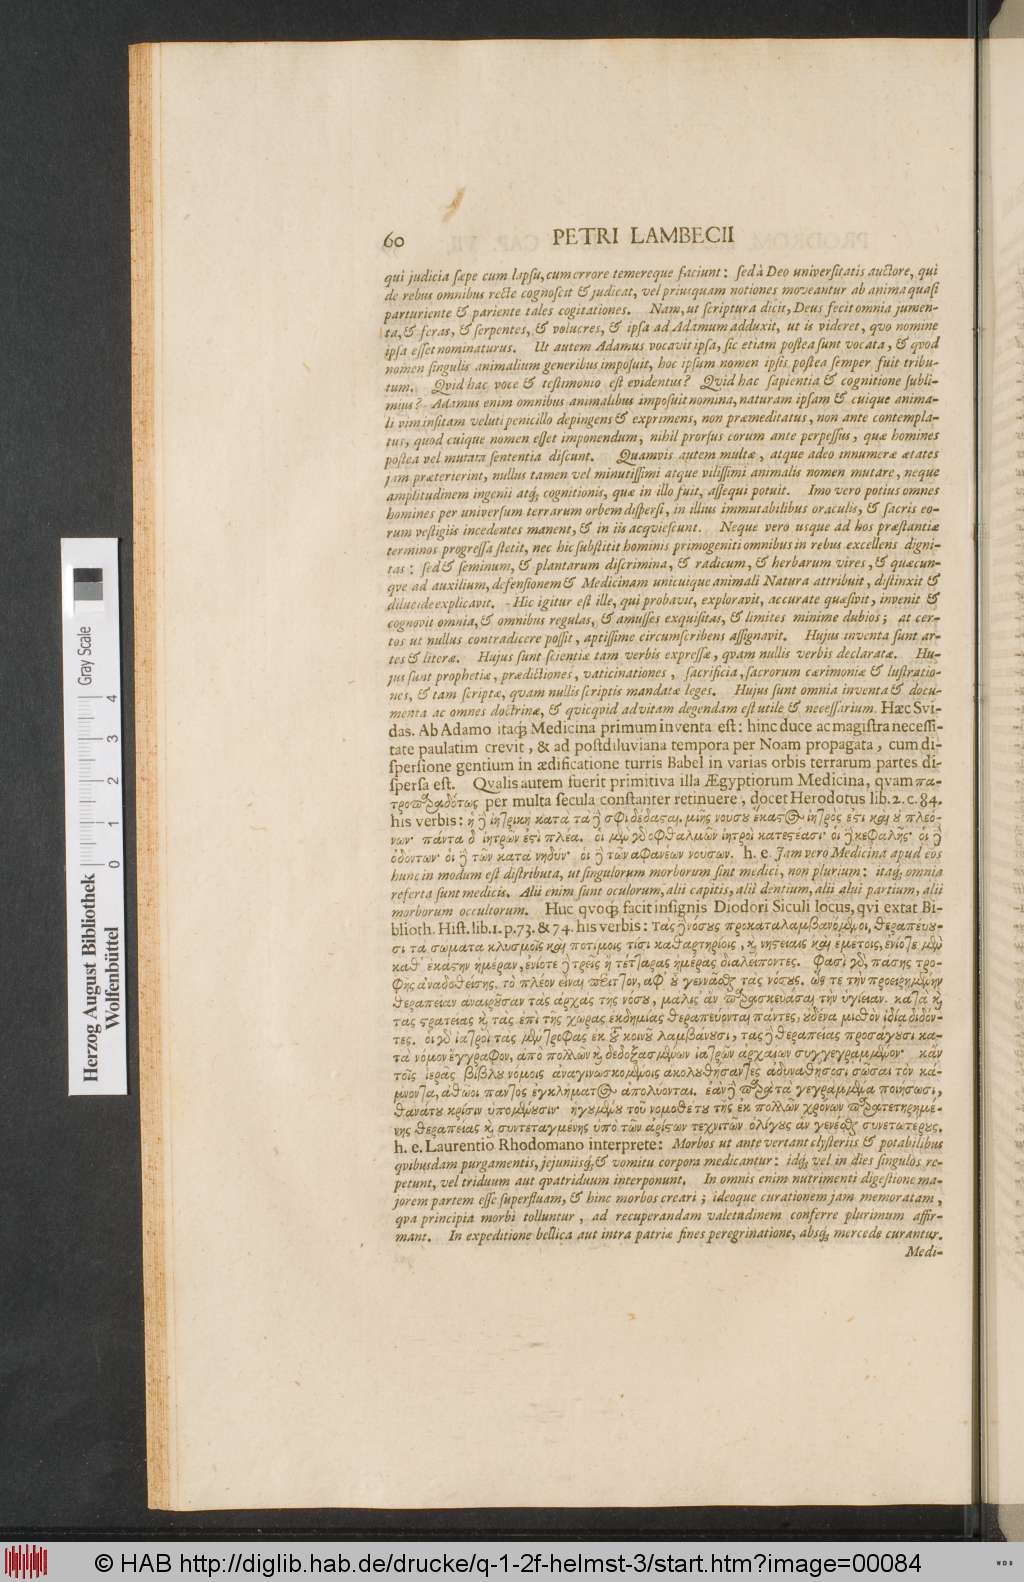 60 PETRI LAMBECII
qui judicia sæpe cum lapsu, cum errore temereque faciunt: sed à Deo universitatis auctore, qui
de rebus omnibus recte cognoscit & judicat, vel priusquam notiones moveantur ab anima quasi
parturiente & pariente tales cogitationes. Nam, ut scriptura dicit, Deus fecit omnia jumen-
ta, & feras, & serpentes, & volucres, & ipsa ad Adamum adduxit, ut is videret, qvo nomine
ipsa esset nominaturus. Ut autem Adamus vocavit ipsa, sic etiam postea sunt vocata, & qvod
nomen singulis animalium generibus imposuit, hoc ipsum nomen ipsis postea semper fuit tribu-
tum. Qvid hac voce & testimonio est evidentus? Qvid hac sapientia & cognitione subli-
mius? Adamus enim omnibus animalibus imposuit nomina, naturam ipsam & cuique anima-
li vim insitam veluti penicillo depingens & exprimens, non præmeditatus, non ante contempla-
tus, quod cuique nomen esset imponendum, nihil prorsus eorum ante perpessus, quæ homines
postea vel mutata sententia discunt. Quamvis autem multæ, atque adeo innumeræ ætates
jam præterierint, nullus tamen vel minutissimi atque vilissimi animalis nomen mutare, neque
amplitudinem ingenii atq; cognitionis, quæ in illo fuit, assequi potuit. Imo vero potius omnes
homines per universum terrarum orbem dispersi, in illius immutabilibus oraculis, & sacris eo-
rum vestigiis incedentes manent, & in iis acquiescunt. Neque vero usque ad hos præstantiæ
terminos progressa stetit, nec hic substitit hominis primogeniti omnibus in rebus excellens digni-
tas: sed & seminum, & plantarum discrimina, & radicum, & herbarum vires, & quæcun-
qve ad auxilium, defensionem & Medicinam unicuique animali Natura attribuit, distinxit &
dilucide explicavit. Hic igitur est ille, qui probavit, exploravit, accurate quæsivit, invenit &
cognovit omnia, & omnibus regulas, & amusses exquisitas, & limites minime dubios; at cer-
tos ut nullus contradicere possit, aptissime circumscribens assignavit. Hujus inventa sunt ar-
tes & literæ. Hujus sunt scientiæ tam verbis expressæ, qvam nullis verbis declaratæ. Hu-
jus sunt prophetiæ, prædictiones, vaticinationes, sacrificia, sacrorum cærimoniæ & lustratio-
nes, & tam scriptæ, qvam nullis scriptis mandatæ leges. Hujus sunt omnia inventa & docu-
menta ac omnes doctrinæ, & qvicqvid ad vitam degendam est utile & necessarium. Hæc Svi-
das. Ab Adamo itaq; Medicina primum inventa est: hinc duce ac magistra necessi-
tate paulatim crevit, & ad postdiluviana tempora per Noam propagata, cum di-
spersione gentium in ædificatione turris Babel in varias orbis terrarum partes di-
spersa est. Qvalis autem fuerit primitiva illa Ægyptiorum Medicina, qvam πα-
τροπαραδότως per multa secula constanter retinuere, docet Herodotus lib. 2. c. 84.
his verbis: ἡ δὲ ἰητρικὴ κατὰ τὰ δὲ σφι δέδασται. μιῆς νούσου ἕκαστος ἰητρός ἐστι καὶ οὐ πλεό-
νων· πάντα δ' ἰητρῶν ἐστὶ πλέα. οἱ μὲν γὰρ ὀφθαλμῶν ἰητροὶ κατεστέασι· οἱ δὲ κεφαλῆς· οἱ δὲ
ὀδόντων· οἱ δὲ τῶν κατὰ νηδύν· οἱ δὲ τῶν ἀφανέων νούσων. h. e. Jam vero Medicina apud eos
hunc in modum est distributa, ut singulorum morborum sint medici, non plurium: itaq; omnia
referta sunt medicis. Alii enim sunt oculorum, alii capitis, alii dentium, alii alui partium, alii
morborum occultorum. Huc qvoq; facit insignis Diodori Siculi locus, qvi extat Bi-
blioth. Hist. lib. 1. p. 73. & 74. his verbis: Τὰς δὲ νόσους προκαταλαμβανόμενοι, θεραπεύου-
σι τὰ σώματα κλυσμοῖς καὶ ποτίμοις τισὶ καθαρτηρίοις, καὶ νηστείαις καὶ ἐμέτοις, ἐνίοτε μὲν
καθ' ἑκάστην ἡμέραν, ἐνίοτε δὲ τρεῖς ἢ τέτταρας ἡμέρας διαλείποντες. Φασὶ γὰρ, πάσης τρο-
φῆς ἀναδοθείσης, τὸ πλέον εἶναι περιττὸν, ἀφ' οὗ γεννᾶσθαι τὰς νόσους. ὥστε τὴν προειρημένην
θεραπείαν ἀναιροῦσαν τὰς ἀρχὰς τῆς νόσου, μάλιστ' ἂν παρασκευάσαι τὴν ὑγίειαν. κατὰ δὲ
τὰς στρατείας καὶ τὰς ἐπὶ τῆς χώρας ἐκδημίας θεραπεύονται πάντες, οὐδένα μισθὸν ἰδίᾳ διδόν-
τες. οἱ γὰρ ἰατροὶ τὰς μὲν τροφὰς ἐκ τοῦ κοινοῦ λαμβάνουσι, τὰς δὲ θεραπείας προσάγουσι κα-
τὰ νόμον ἔγγραφον, ἀπὸ πολλῶν καὶ δεδοξασμένων ἰατρῶν ἀρχαίων συγγεγραμμένον· κἂν
τοῖς ἱερᾶς βίβλου νόμοις ἀναγινωσκομένοις ἀκολουθήσαντες ἀδυνατήσωσι σῶσαι τὸν κά-
μνοντα, ἀθῶοι παντὸς ἐγκλήματος ἀπολύονται. ἐὰν δὲ παρὰ τὰ γεγραμμένα ποιήσωσι,
θανάτου κρίσιν ὑπομένουσιν· ἡγουμένου τοῦ νομοθέτου τῆς ἐκ πολλῶν χρόνων παρατετηρημέ-
νης θεραπείας καὶ συντεταγμένης ὑπὸ τῶν ἀρίστων τεχνιτῶν ὀλίγους ἂν γενέσθαι συνετωτέρους.
h. e. Laurentio Rhodomano interprete: Morbos ut antevertant clysteriis & potabilibus
qvibusdam purgamentis, jejuniisq; & vomitu corpora medicantur: idq; vel in dies singulos re-
petunt, vel triduum aut qvatriduum interponunt. In omnis enim nutrimenti digestione ma-
jorem partem esse superfluam, & hinc morbos creari; ideoque curationem jam memoratam,
qva principia morbi tolluntur, ad recuperandam valetudinem conferre plurimum affir-
mant. In expeditione bellica aut intra patriæ fines peregrinatione, absq; mercede curantur.
Medi-
Herzog August Bibliothek
Wolfenbüttel
0 1 2 3 4
Gray Scale
© HAB http://diglib.hab.de/drucke/q-1-2f-helmst-3/start.htm?image=00084